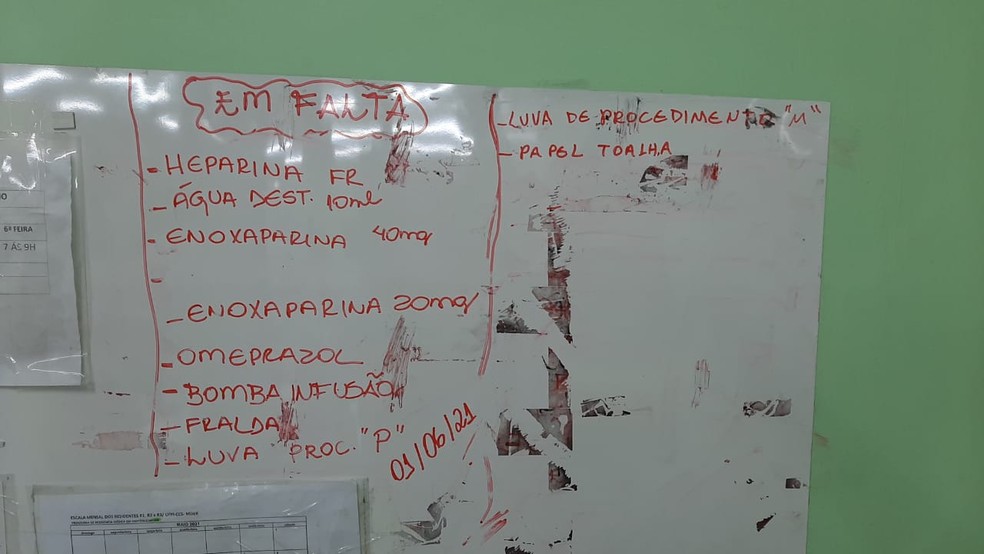 EM FALTA
- HEPARINA FR
- ÁGUA DEST. 10ml
- ENOXAPARINA 40mg
-
- ENOXAPARINA 20mg
- OMEPRAZOL
- BOMBA INFUSÃO
- FRALDA
- LUVA PROC. "P"
01/06/21
- LUVA DE PROCEDIMENTO "M"
- PAPEL TOALHA
6ª FEIRA
7 ÀS 9H
ESCALA MENSAL DOS RESIDENTES R1, R2 e R3/
MAIO 2021